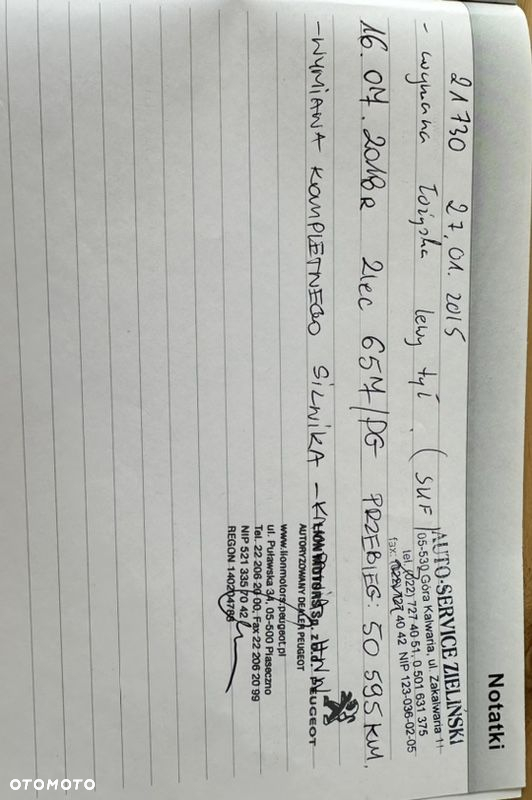 Notatki
21730 27.01.2015
- wymiana łożyska lewy tył. (SKF)
AUTO-SERVICE ZIELIŃSKI
05-530 Góra Kalwaria, ul. Zakalwaria 11
tel. (022) 727 40 51, 0 501 631 375
fax: (022) 727 40 42 NIP 123-036-02-05
16.07.2018R zlec 657/PG PRZEBIEG: 50 595 KM.
- WYMIANA KOMPLETNEGO SILNIKA -
LION MOTORS Sp. z o.o. PEUGEOT
AUTORYZOWANY DEALER PEUGEOT
www.lionmotors.peugeot.pl
ul. Puławska 34, 05-500 Piaseczno
Tel. 22 206 20 00, Fax 22 206 20 99
NIP 521 335 70 42
REGON 140204785
OTOMOTO